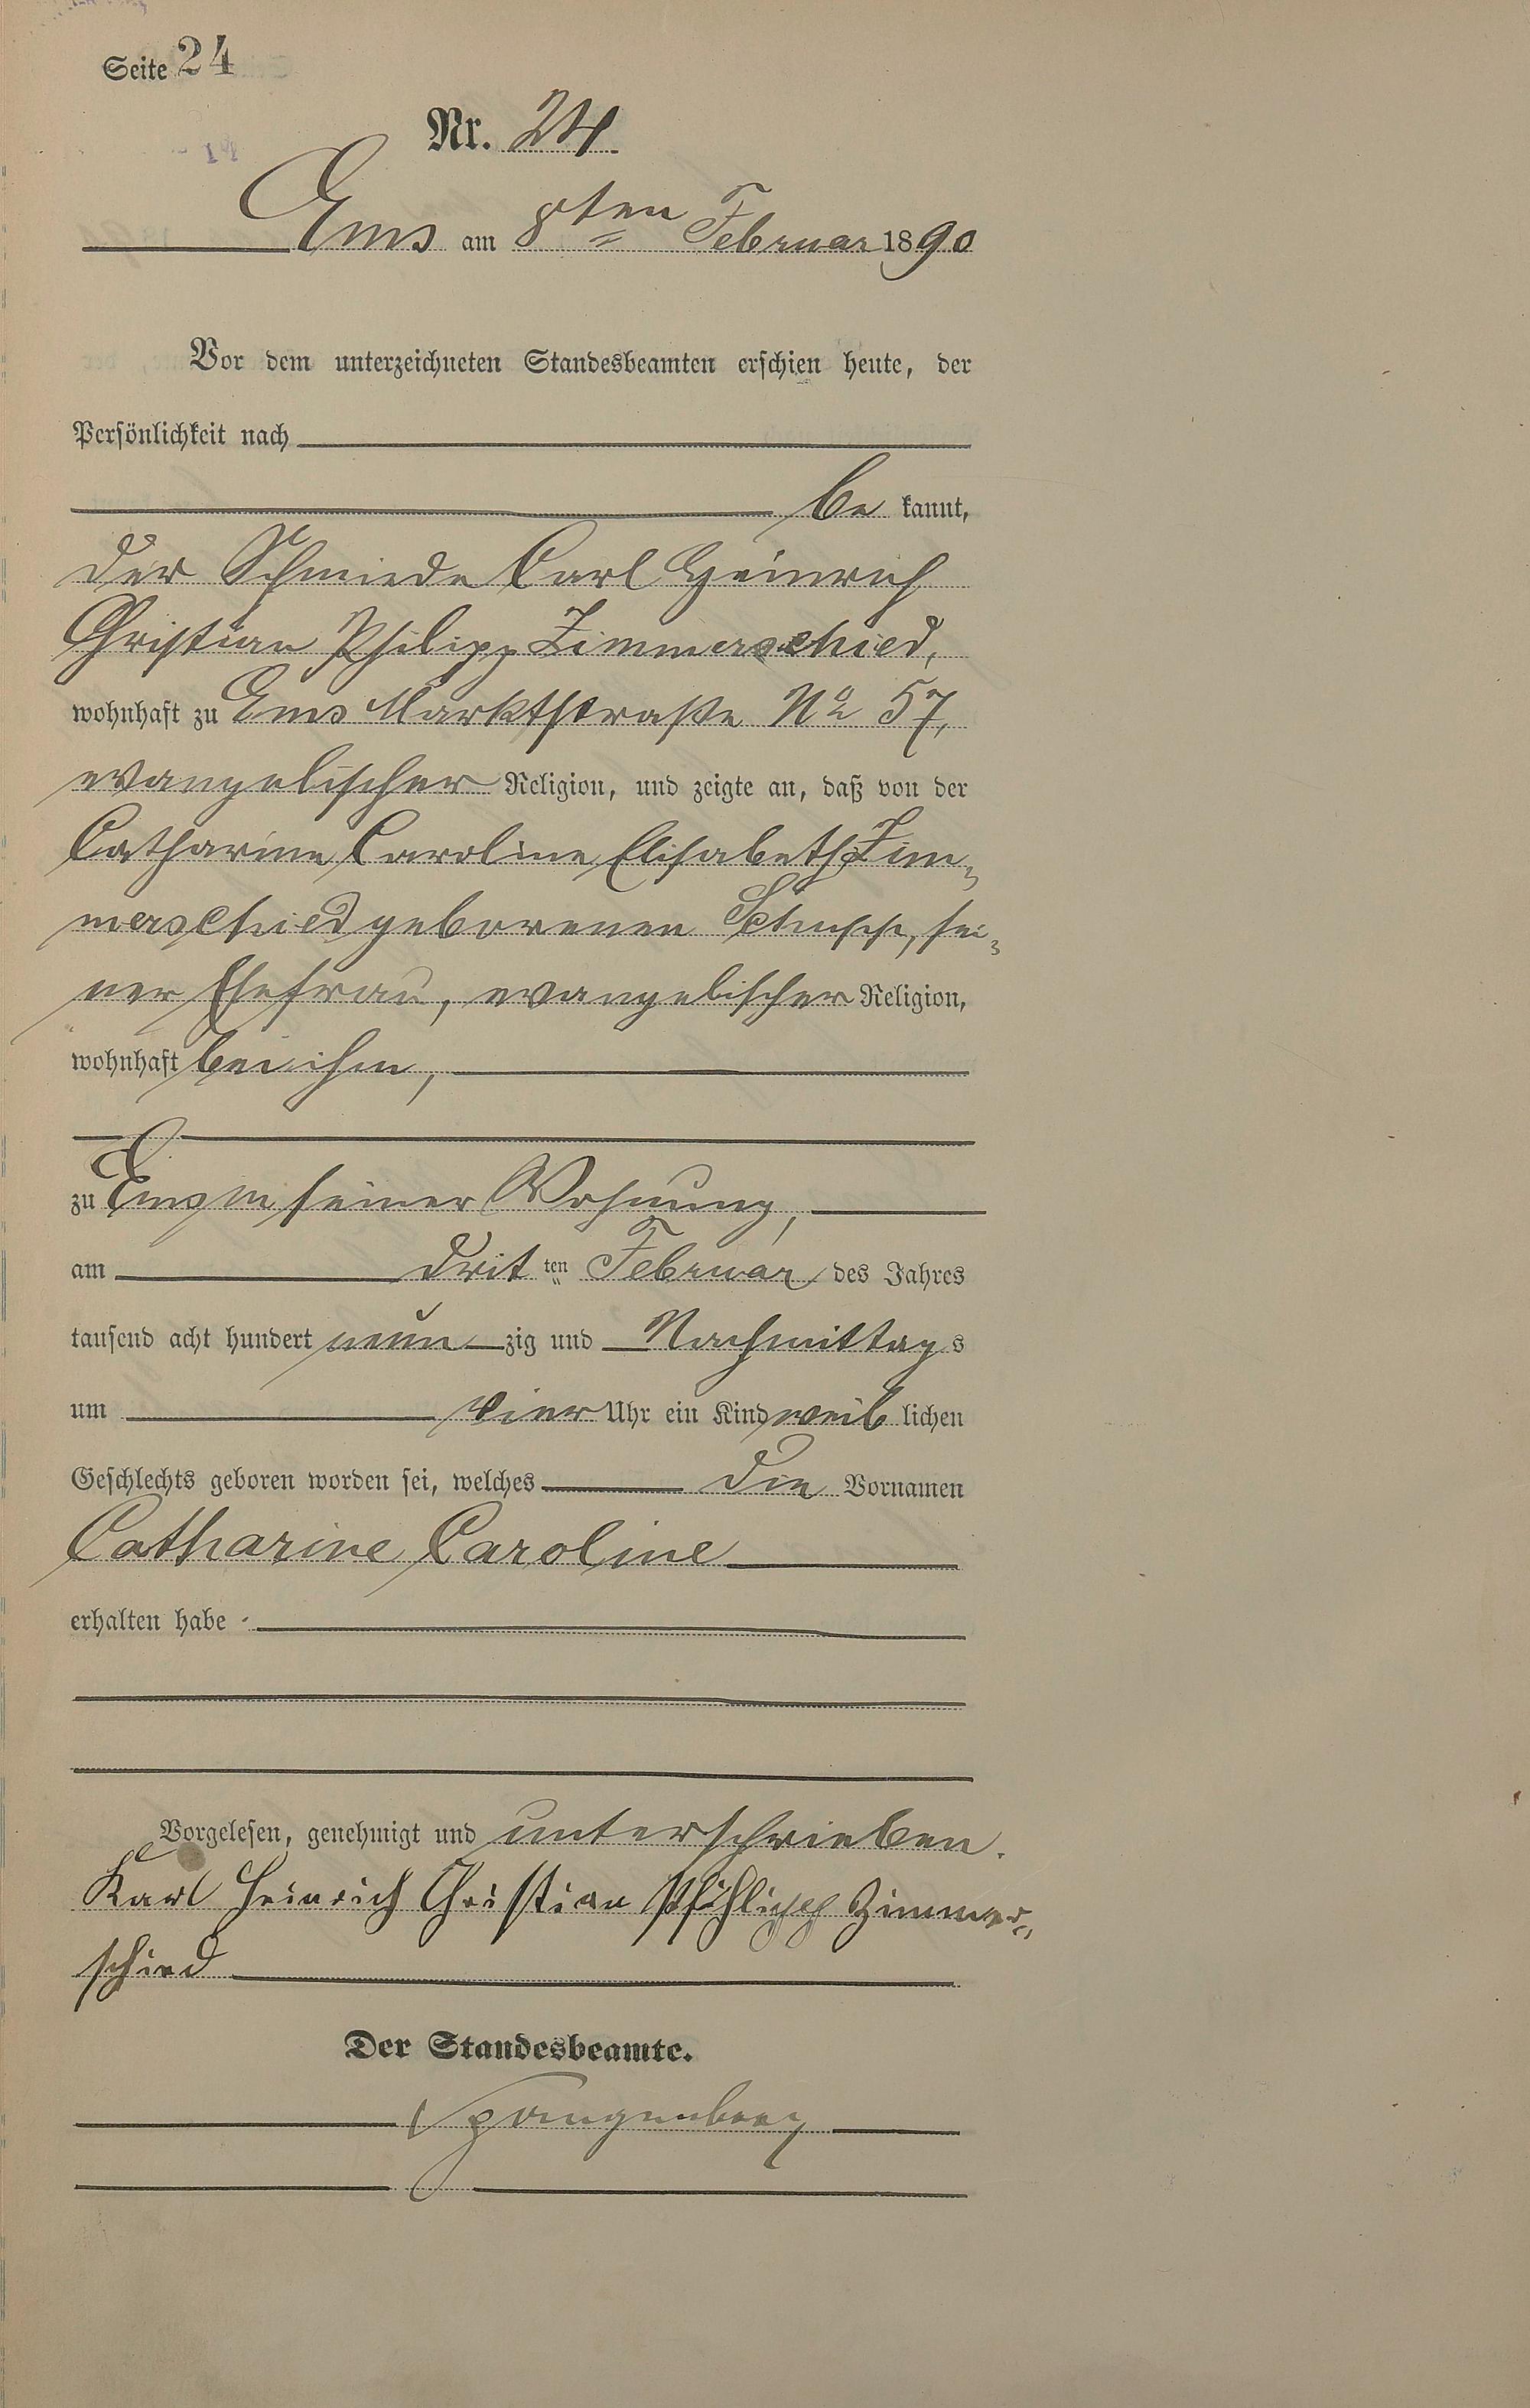 Seite 24
Nr. 24
Ems am 8ten Februar 1890
Vor dem unterzeichneten Standesbeamten erschien heute, der
Persönlichkeit nach
be kannt,
der Schmiede Carl Heinrich
Christian Philipp Zimmerschied,
wohnhaft zu Ems Marktstraße No 57,
evangelischer Religion, und zeigte an, daß von der
Catharine Caroline Elisabeth Zim-
merschied geborenen Schupp, sei-
ner Ehefrau, evangelischer Religion,
wohnhaft bei ihm,
zu Ems in seiner Wohnung,
am drit ten Februar des Jahres
tausend acht hundert neun zig und Nachmittags
um vier Uhr ein Kind weib lichen
Geschlechts geboren worden sei, welches die Vornamen
Catharine Caroline
erhalten habe
Vorgelesen, genehmigt und unterschrieben.
Karl Heinrich Christian Zimmer-
schied
Der Standesbeamte.
Spangenberg